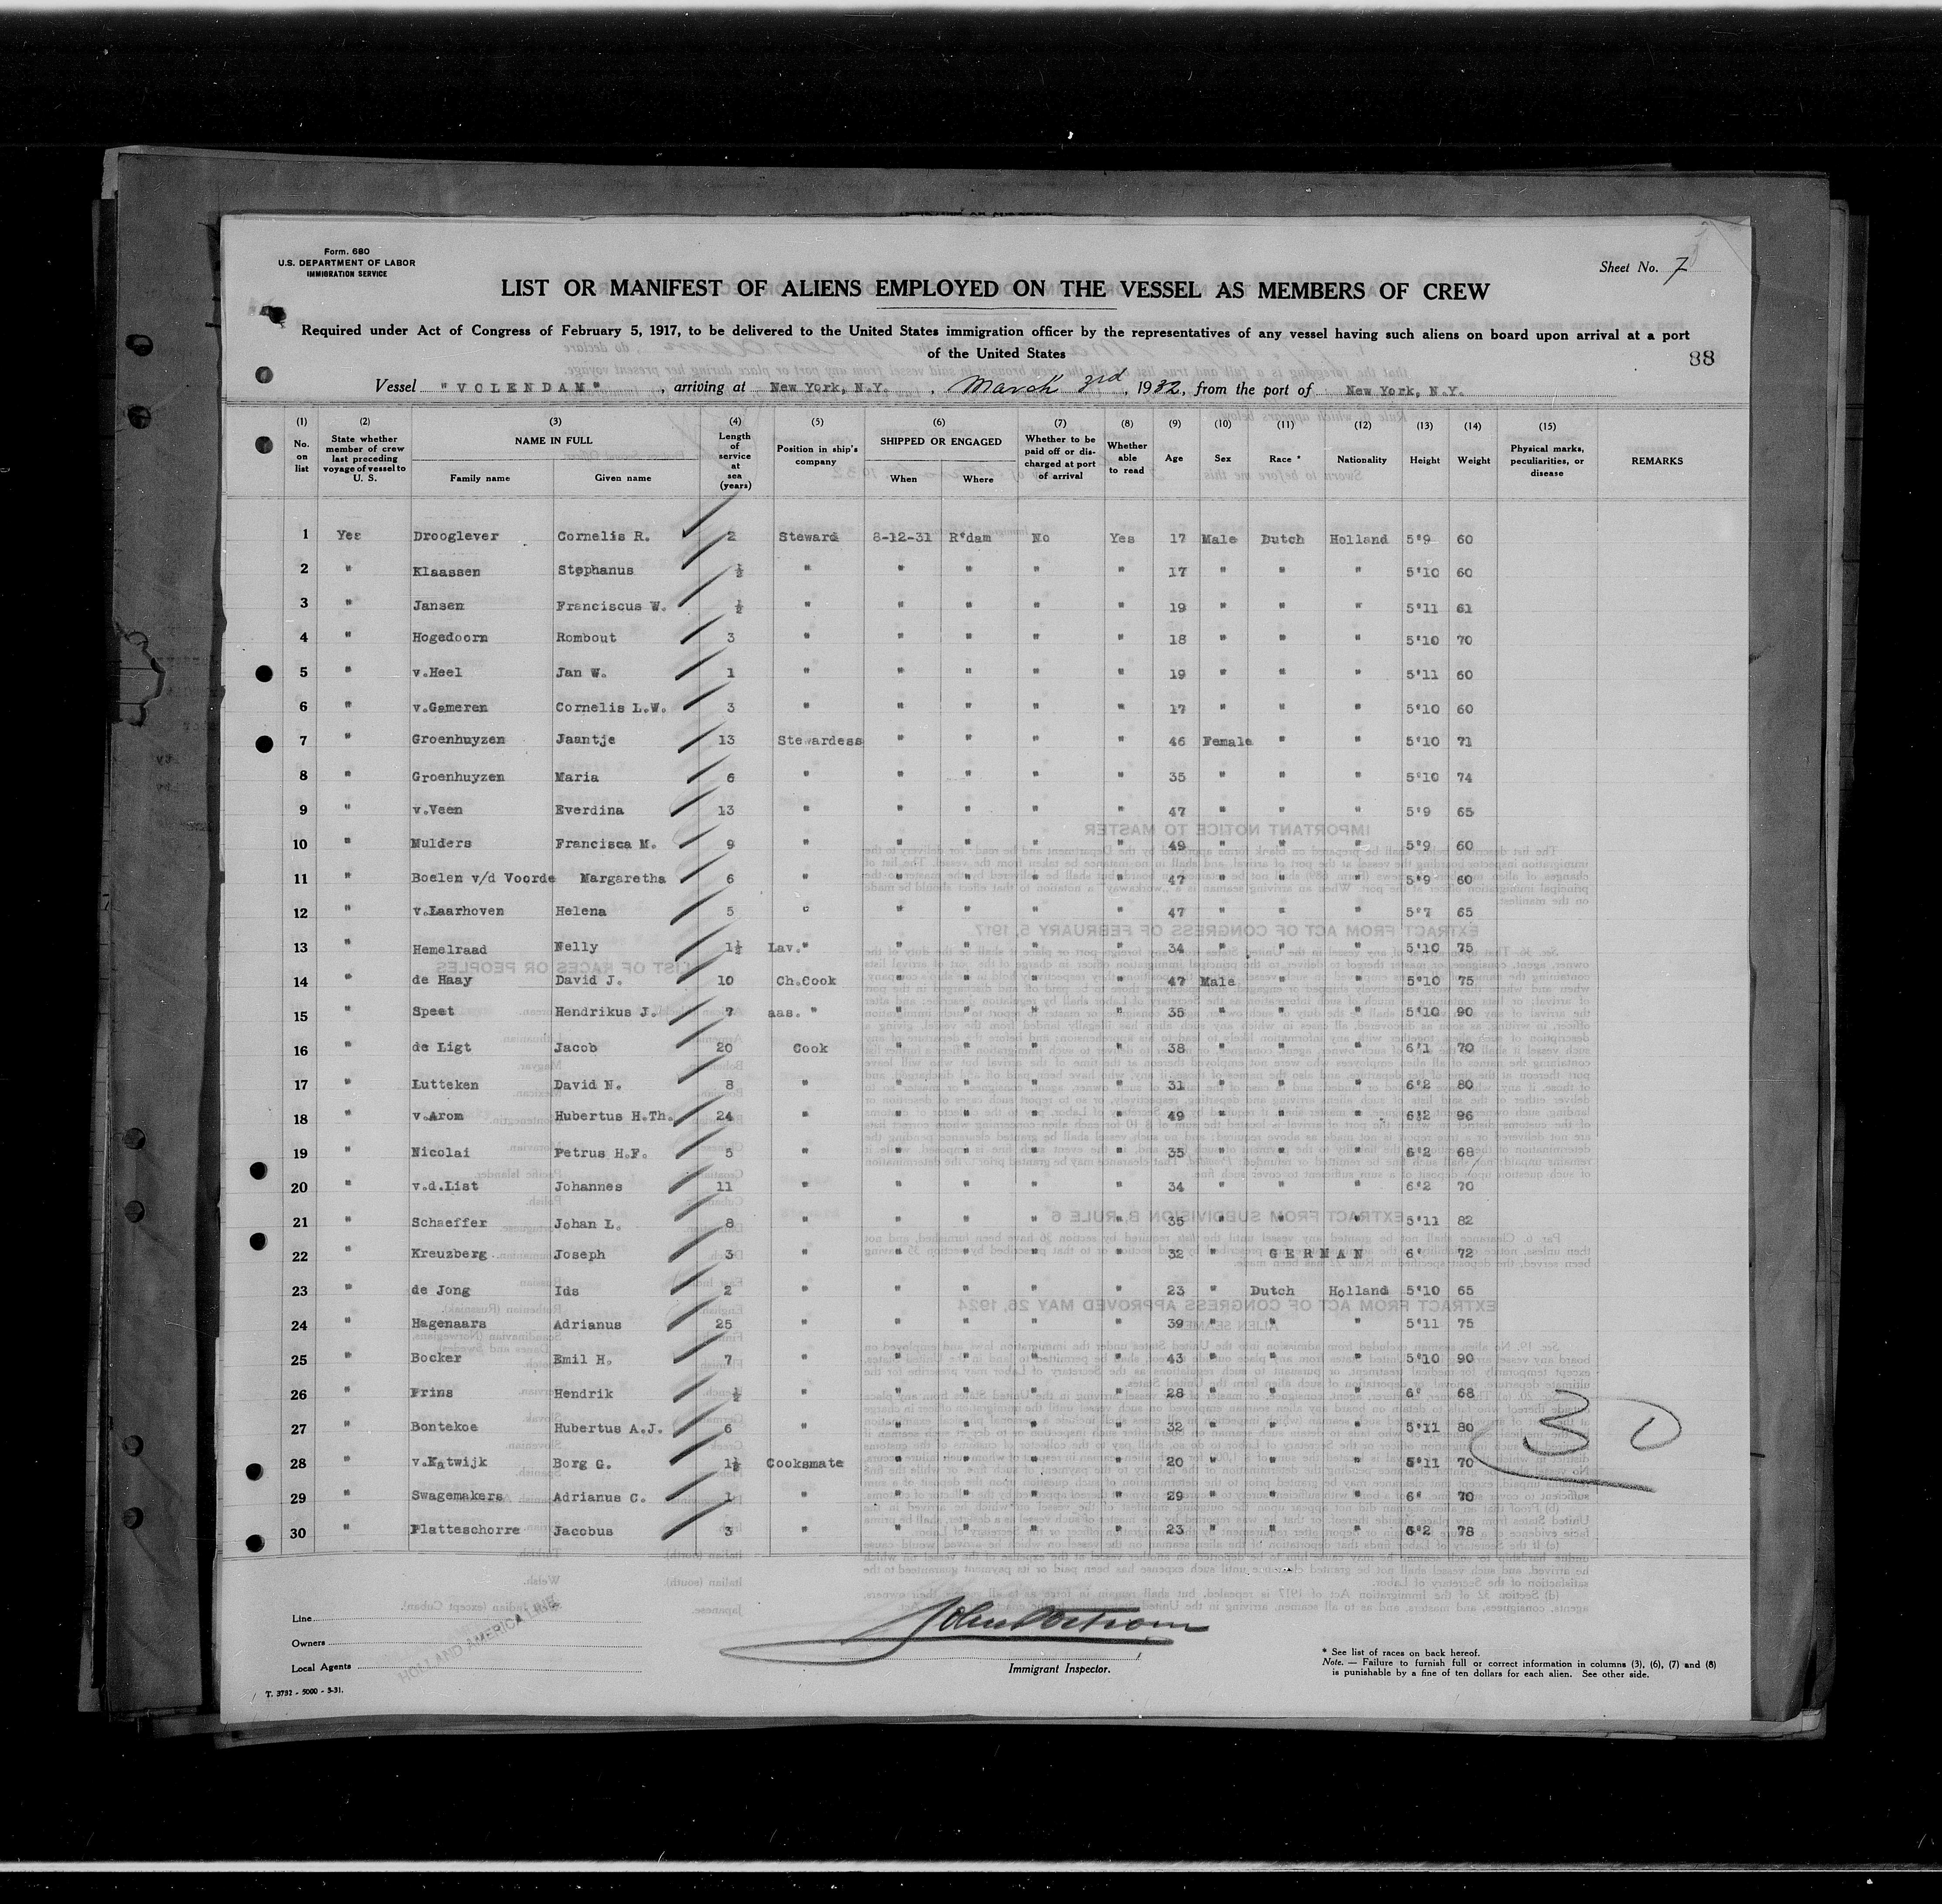 Form. 680
U.S. DEPARTMENT OF LABOR
IMMIGRATION SERVICE
Sheet No. 7
LIST OR MANIFEST OF ALIENS EMPLOYED ON THE VESSEL AS MEMBERS OF CREW
Required under Act of Congress of February 5, 1917, to be delivered to the United States immigration officer by the representatives of any vessel having such aliens on board upon arrival at a port
of the United States
88
Vessel "VOLENDAM", arriving at New York, N.Y., March 3rd, 1932, from the port of New York, N.Y.
(1) No. on list (2) State whether member of crew last preceding voyage of vessel to U. S. (3) NAME IN FULL Family name Given name (4) Length of service at sea (years) (5) Position in ship's company (6) SHIPPED OR ENGAGED When Where (7) Whether to be paid off or discharged at port of arrival (8) Whether able to read (9) Age (10) Sex (11) Race * (12) Nationality (13) Height (14) Weight (15) Physical marks, peculiarities, or disease REMARKS
1 Yes Drooglever Cornelis R. 2 Steward 8-12-31 R'dam No Yes 17 Male Dutch Holland 5'9 60
2 " Klaassen Stephanus ½ " " " " " 17 " " " 5'10 60
3 " Jansen Franciscus W. ½ " " " " " 19 " " " 5'11 61
4 " Hogedoorn Rombout 3 " " " " " 18 " " " 5'10 70
5 " v.Heel Jan W. 1 " " " " " 19 " " " 5'11 60
6 " v.Gameren Cornelis L.W. 3 " " " " " 17 " " " 5'10 60
7 " Groenhuyzen Jaantje 13 Stewardess " " " " 46 Female " " 5'10 71
8 " Groenhuyzen Maria 6 " " " " " 35 " " " 5'10 74
9 " v.Veen Everdina 13 " " " " " 47 " " " 5'9 65
10 " Mulders Francisca M. 9 " " " " " 49 " " " 5'9 60
11 " Boelen v/d Voorde Margaretha 6 " " " " " 47 " " " 5'9 60
12 " v.Laarhoven Helena 5 " " " " " 47 " " " 5'7 65
13 " Hemelraad Nelly 1½ Lav." " " " " 34 " " " 5'10 75
14 " de Haay David J. 10 Ch.Cook " " " " 47 Male " " 5'10 75
15 " Speet Hendrikus J. 7 aas. " " " " " 35 " " " 5'10 90
16 " de Ligt Jacob 20 Cook " " " " 38 " " " 6'1 70
17 " Lutteken David N. 8 " " " " " 31 " " " 6'2 80
18 " v.Arom Hubertus H.Th. 24 " " " " " 49 " " " 6'2 96
19 " Nicolai Petrus H.F. 5 " " " " " 35 " " " 6'2 68
20 " v.d.List Johannes 11 " " " " " 34 " " " 6'2 70
21 " Schaeffer Johan L. 8 " " " " " 35 " " " 5'11 82
22 " Kreuzberg Joseph 3 " " " " " 32 " GERMAN 6' 72
23 " de Jong Ids 2 " " " " " 23 " Dutch Holland 5'10 65
24 " Hagenaars Adrianus 25 " " " " " 39 " " " 5'11 75
25 " Bocker Emil H. 7 " " " " " 43 " " " 5'10 90
26 " Prins Hendrik ½ " " " " " 28 " " " 6' 68
27 " Bontekoe Hubertus A.J. 6 " " " " " 32 " " " 5'11 80
28 " v.Katwijk Borg G. 1½ Cooksmate " " " " 20 " " " 5'11 70
29 " Swagemakers Adrianus C. 1 " " " " " 29 " " " 6' 70
30 " Platteschorre Jacobus 3 " " " " " 23 " " " 6'2 78
30
Line
Owners
Local Agents
HOLLAND AMERICA LINE
Immigrant Inspector.
* See list of races on back hereof.
Note. — Failure to furnish full or correct information in columns (3), (6), (7) and (8)
is punishable by a fine of ten dollars for each alien. See other side.
T. 3732 - 5000 - 3-31.